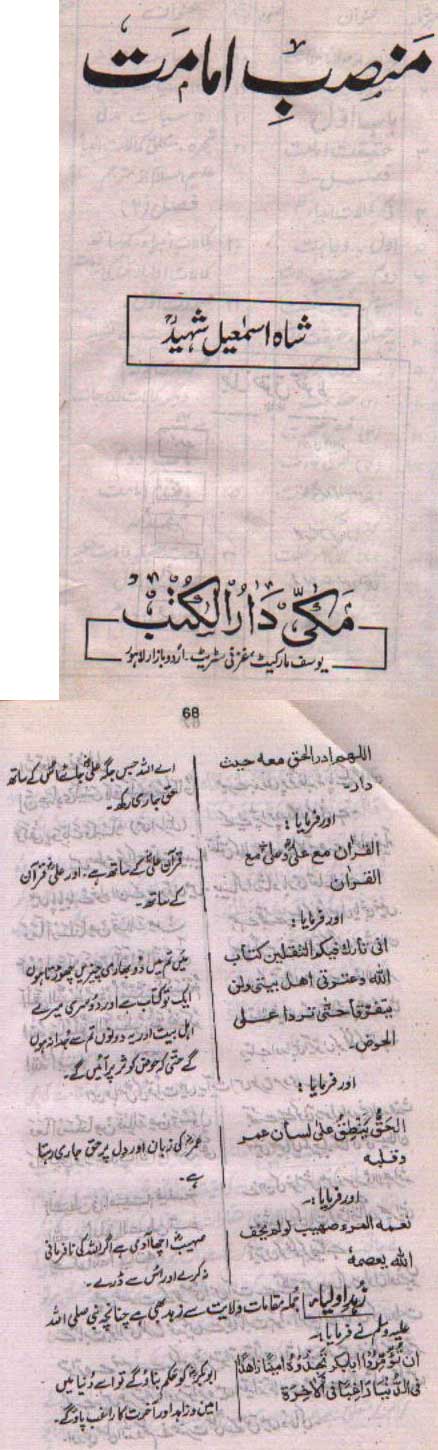 منصبِ امامت
شاہ اسمٰعیل شہیدؒ
مکّی دارالکتب
یوسف مارکیٹ، غزنی سٹریٹ۔ اردو بازار لاہور
68
اللهم ادر الحق معه حيث
دار۔
اے اللہ جس جگہ علیؓ جائے اسی کے ساتھ
حق جاری رکھ۔
اور فرمایا:
القران مع علی و علی مع
القران
قرآن علیؓ کے ساتھ ہے۔ اور علیؓ قرآن
کے ساتھ۔
اور فرمایا:
انی تارك فيكم الثقلين كتاب
الله وعترتی اهل بیتی ولن
يتفرقا حتی تردا علی
الحوض۔
میں تم میں دو بھاری چیزیں چھوڑتا ہوں
ایک تو کتاب ہے اور دوسری میرے
اہل بیت اور یہ دونوں تم سے جدا نہ ہوں
گے حتی کہ حوض کوثر پر آئیں گے۔
اور فرمایا:
الحقُّ ینطق علی لسان عمر
وقلبه
عمرؓ کی زبان اور دل پر حق جاری رہتا
ہے۔
اور فرمایا۔
نعمه المرء صهيب لو لم يخف
الله يعصمه
صہیبؓ اچھا آدمی ہے اگر اللہ کی نافرمانی
نہ کرے اور اس سے ڈرے۔
زہد اولیاء۔ جملہ مقامات ولایت سے زہد بھی ہے چنانچہ نبی صلی اللہ
علیہ وسلم نے فرمایا۔
ان تؤمروا ابابكر تجدوه امینا زاهدا
فی الدنیا راغبا فی الاخرة
ابوبکرؓ کو حکم بناؤ گے تو اسے دنیا میں
امین و زاہد اور آخرت کا راغب پاؤ گے۔